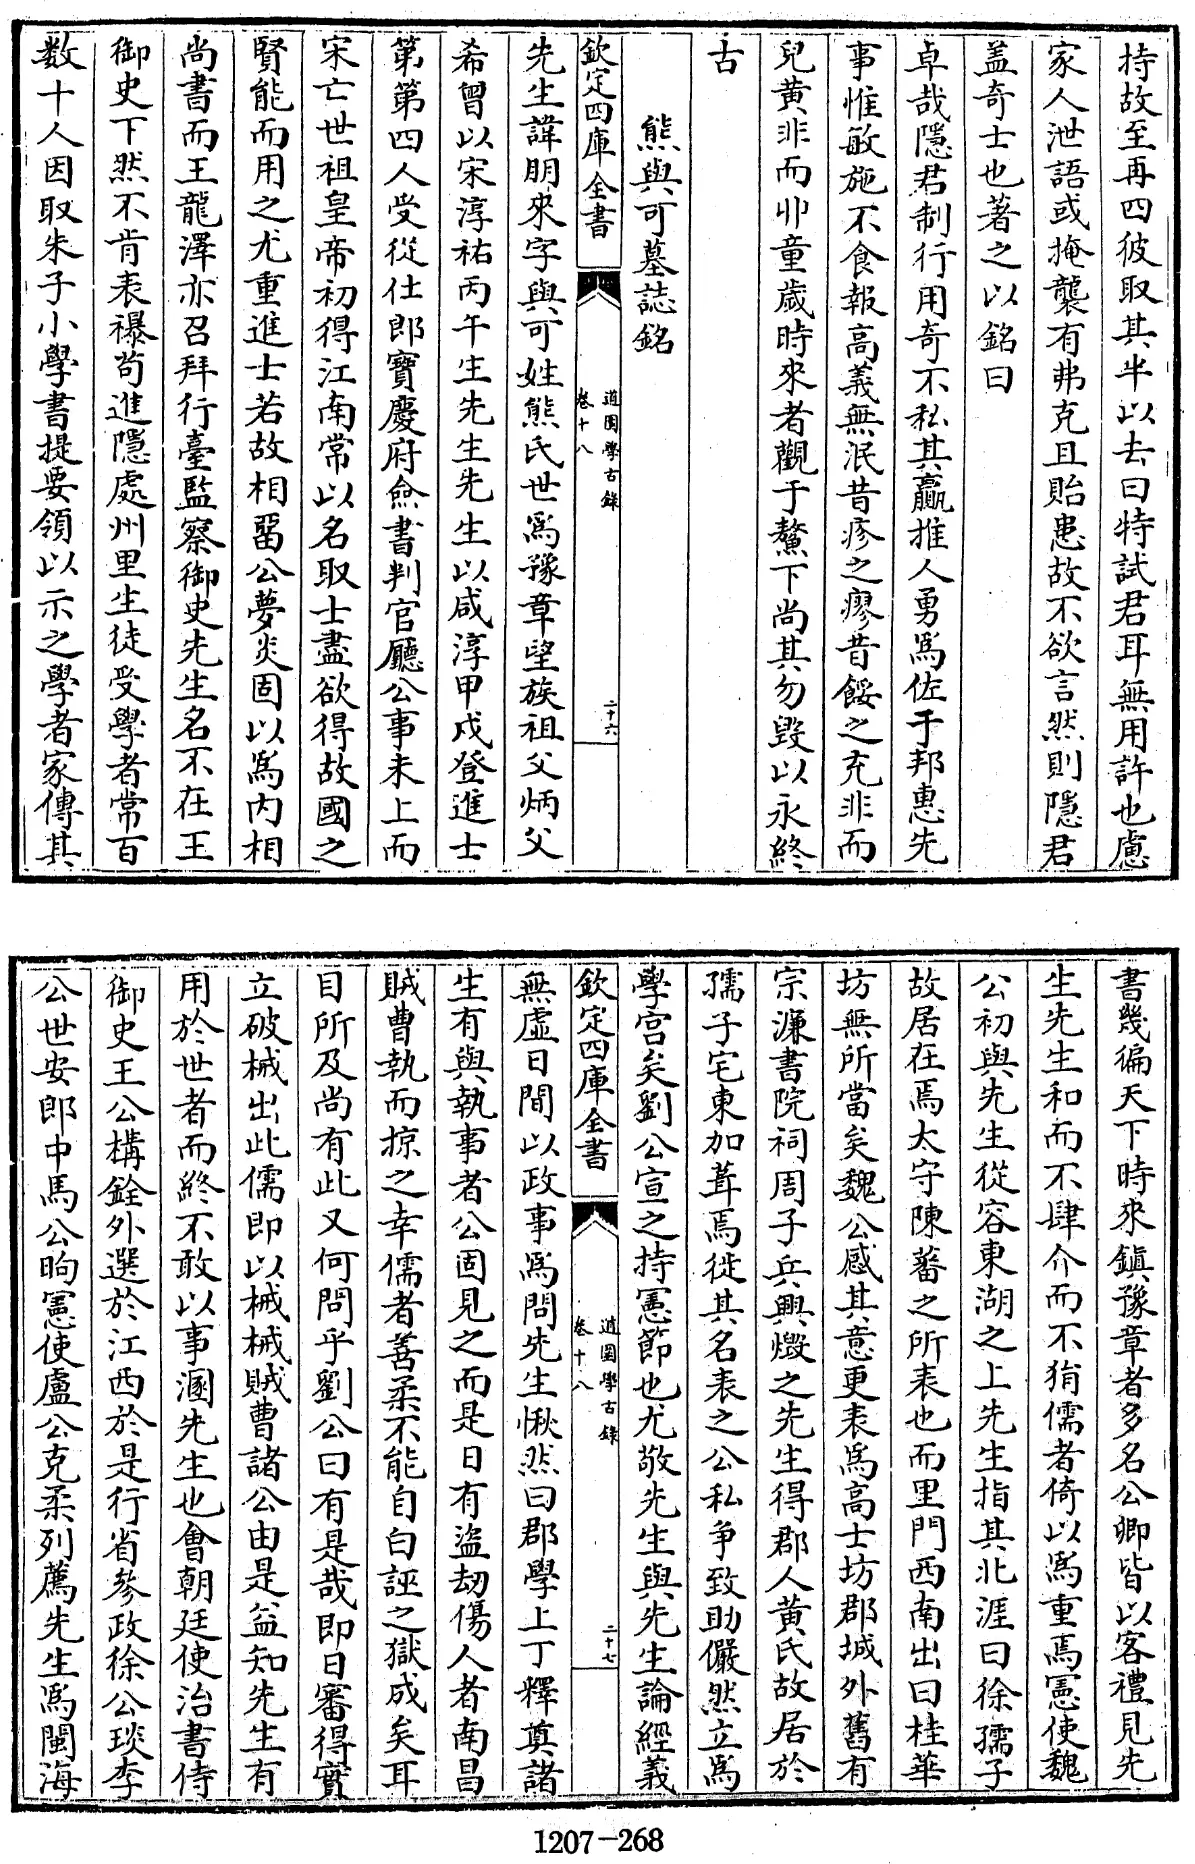 持故至再四彼取其半以去曰特試君耳無用許也慮
家人泄語或掩襲有弗克且貽患故不欲言然則隱君
盖奇士也著之以銘曰
卓哉隱君制行用奇不私其贏推人勇爲佐于邦惠先
事惟敏施不食報高義無泯昔疹之瘳昔餒之充非而
兒黄非而丱童歲時來者觀于鰲下尚其勿毀以永終
古
熊與可墓誌銘
欽定四庫全書
道園學古錄
卷十八
二十六
先生諱朋來字與可姓熊氏世爲豫章望族祖父炳父
希曾以宋淳祐丙午生先生先生以咸淳甲戌登進士
第第四人受從仕郎寶慶府僉書判官廳公事未上而
宋亡世祖皇帝初得江南常以名取士盡欲得故國之
賢能而用之尤重進士若故相留公夢炎固以爲内相
尚書而王龍澤亦召拜行臺監察御史先生名不在王
御史下然不肯表襮茍進隱處州里生徒受學者常百
数十人因取朱子小學書提要領以示之學者家傳其
書幾徧天下時來鎮豫章者多名公卿皆以客禮見先
生先生和而不肆介而不狷儒者倚以爲重焉憲使魏
公初與先生從容東湖之上先生指其北涯曰徐孺子
故居在焉太守陳蕃之所表也而里門西南出曰桂華
坊無所當矣魏公感其意更表爲高士坊郡城外舊有
宗濂書院祠周子兵興燬之先生得郡人黄氏故居於
孺子宅東加葺焉徙其名表之公私争致助儼然立爲
學宫矣劉公宣之持憲節也尤敬先生與先生論經義
欽定四庫全書
道園學古錄
卷十八
二十七
無虚日間以政事爲問先生愀然曰郡學上丁釋奠諸
生有與執事者公固見之而是日有盜刧傷人者南昌
賊曹執而掠之幸儒者善柔不能自白誣之獄成矣耳
目所及尚有此又何問乎劉公曰有是哉即日審得實
立破械出此儒即以械械賊曹諸公由是益知先生有
用於世者而終不敢以事溷先生也會朝廷使治書侍
御史王公構銓外選於江西於是行省參政徐公琰李
公世安郎中馬公昫憲使盧公克柔列薦先生爲閩海
1207—268